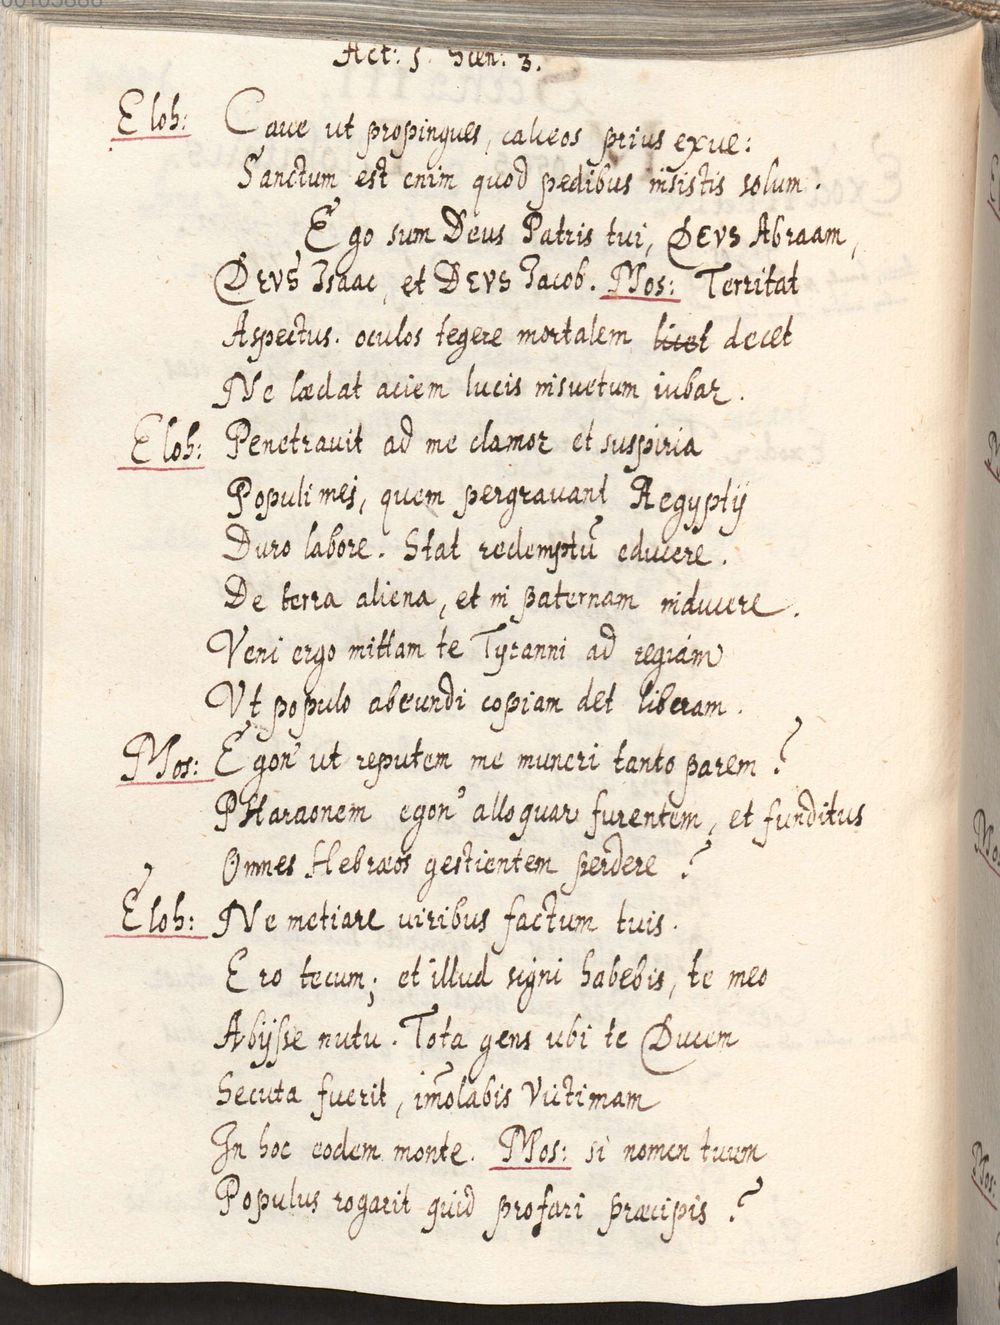 Act: 1. Scen: 3.
Eloh: Caue ut propinques, calceos prius exue:
Sanctum est enim quod pedibus insistis solum.
Ego sum Deus Patris tui, DEVS Abraam,
DEVS Isaac, et DEVS Jacob. Mos: Territat
Aspectus. oculos tegere mortalem licet decet
Ne lædat aciem lucis insuetum iubar.
Eloh: Penetrauit ad me clamor et suspiria
Populi mei, quem pergrauant Aegyptij
Duro labore. Stat redemptũ educere.
De terra aliena, et in paternam inducere.
Veni ergo mittam te Tyranni ad regiam
Vt populo abeundi copiam det liberam.
Mos: Egon' ut reputem me muneri tanto parem?
PHaraonem egon' alloquar furentem, et funditus
Omnes Hebræos gestientem perdere?
Eloh: Ne metiare uiribus factum tuis.
Ero tecum; et illud signi habebis, te meo
Abijsse nutu. Tota gens ubi te Ducem
Secuta fuerit, im̃olabis Victimam
In hoc eodem monte. Mos: si nomen tuum
Populus rogarit quid profari præcipis?